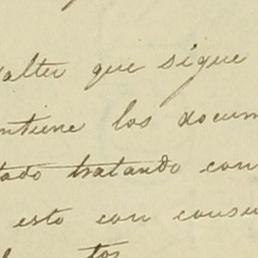 valter que sigue
ntiene los docum
tado tratando con
esto con consu
tos